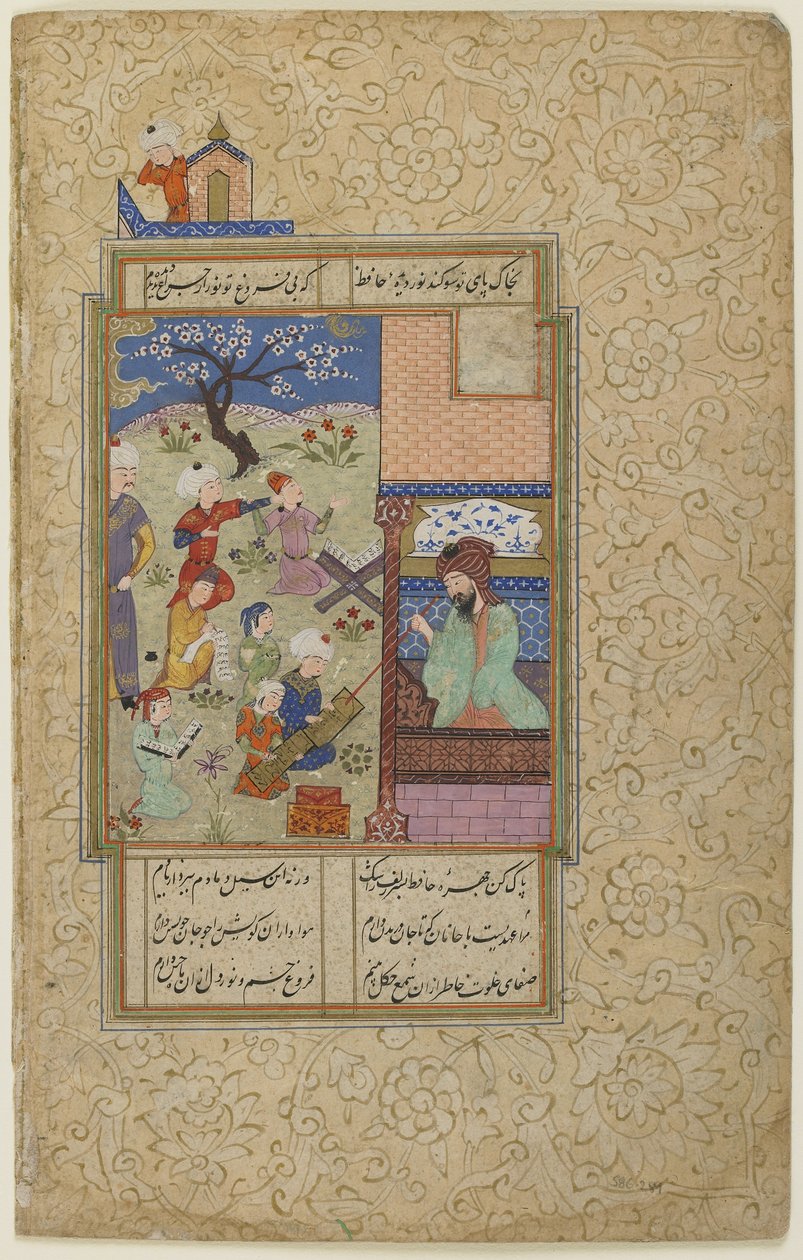 بخاک پای تو سوکند نور دیده حافظ که بی فروغ تو نور از چراغ دیده ندیدم
پاک کن چهرهٔ حافظ بسر زلف ز اشک ورنه این سیل دمادم ببرد بنیادم
مرا عهدیست با جانان که تا جان در بدن دارم هواداران کویش را چو جان خویشتن دارم
صفای خلوت خاطر از آن شمع چکل بینم فروغ چشم و نور دل از آن ماه ختن دارم
586.259